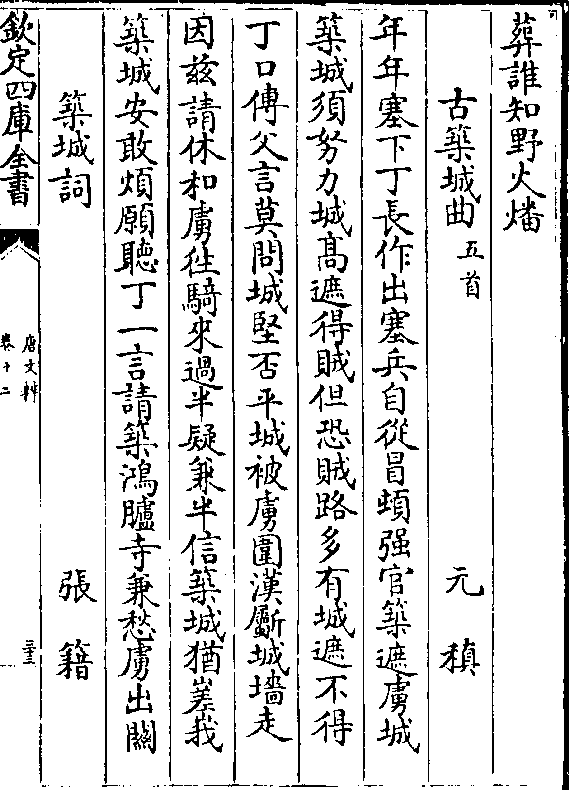 葬誰知野火燔
古築城曲五首 元稹
年年塞下丁長作出塞兵自從冒頓强官築遮虜城
築城須努力城高遮得賊但恐賊路多有城遮不得
丁口傳父言莫問城堅否平城被虜圍漢斸城墻走
因兹請休和虜徃騎來過半疑兼半信築城猶嵳峩
築城安敢煩願聽丁一言請築鴻臚寺兼愁虜出關
築城詞 張籍
欽定四庫全書
唐文粹
卷十二
三十三